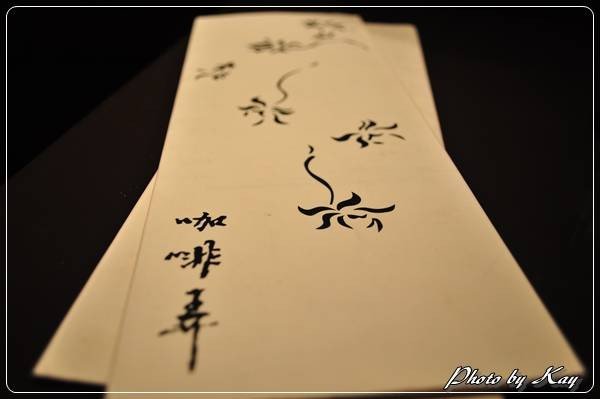 咖啡弄
Photo by Kay